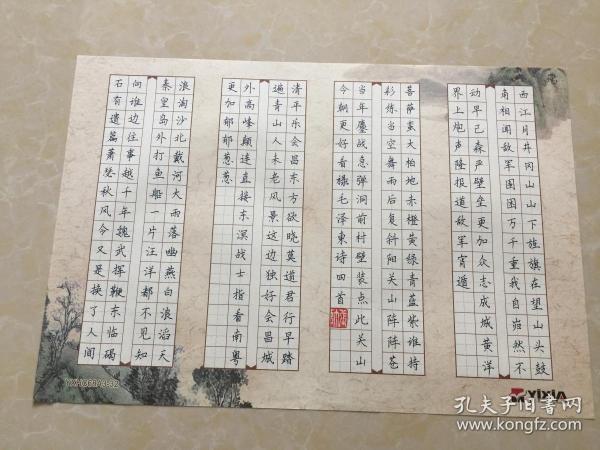 西江月井冈山山下旌旗在望山头鼓
角相闻敌军围困万千重我自岿然不
动早已森严壁垒更加众志成城黄洋
界上炮声隆报道敌军宵遁
菩萨蛮大柏地赤橙黄绿青蓝紫谁持
彩练当空舞雨后复斜阳关山阵阵苍
当年鏖战急弹洞前村壁装点此关山
今朝更好看毛泽東诗四首
清平乐会昌东方欲晓莫道君行早踏
遍青山人未老风景这边独好会昌城
外高峰颠连直接东溟战士指看南粤
更加郁郁葱葱
浪淘沙北戴河大雨落幽燕白浪滔天
秦皇岛外打鱼船一片汪洋都不见知
向谁边往事越千年魏武挥鞭东临碣
石有遗篇萧瑟秋风今又是换了人间
YIXIA
孔夫子旧书网
www.kongfz.com